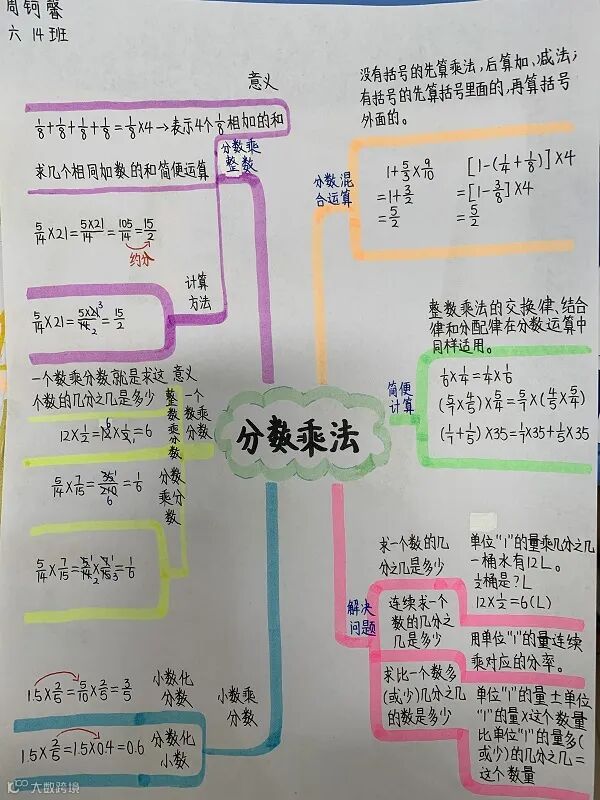 周钶馨
六 14班
意义
1/8+1/8+1/8+1/8=1/8×4→表示4个1/8相加的和
求几个相同加数的和简便运算
分数乘
整数
5/14×21=5×21/14=105/14=15/2
约分
计算
方法
5/14×21=5×21 3/14 2=15/2
没有括号的先算乘法,后算加、减法;
有括号的先算括号里面的,再算括号
外面的。
分数混
合运算
1+5/3×9/10
=1+3/2
=5/2
[1-(1/4+1/8)]×4
=[1-3/8]×4
=5/2
整数乘法的交换律、结合
律和分配律在分数运算中
同样适用。
简便
计算
1/6×1/4=1/4×1/6
(5/7×4/5)×5/4=5/7×(4/5×5/4)
(1/7+1/5)×35=1/7×35+1/5×35
分数乘法
一个数乘分数就是求这
个数的几分之几是多少
意义
一个数乘分数
整数乘分数
12×1/2=12 6×1/2 1=6
分数乘分数
5/14×7/15=35 1/210 6=1/6
5/14×7/15=5 1/14 2×7 1/15 3=1/6
小数乘
分数
小数化
分数
1.5×2/5=5/10×2/5=3/5
分数化
小数
1.5×2/5=1.5×0.4=0.6
解决
问题
求一个数的几
分之几是多少
单位"1"的量乘几分之几
一桶水有12L。
1/2桶是?L
12×1/2=6(L)
连续求一个
数的几分之
几是多少
用单位"1"的量连续
乘对应的分率。
求比一个数多
(或少)几分之几
的数是多少
单位"1"的量±单位
"1"的量×这个数量
比单位"1"的量多(
或少)的几分之几=
这个数量
大数跨境